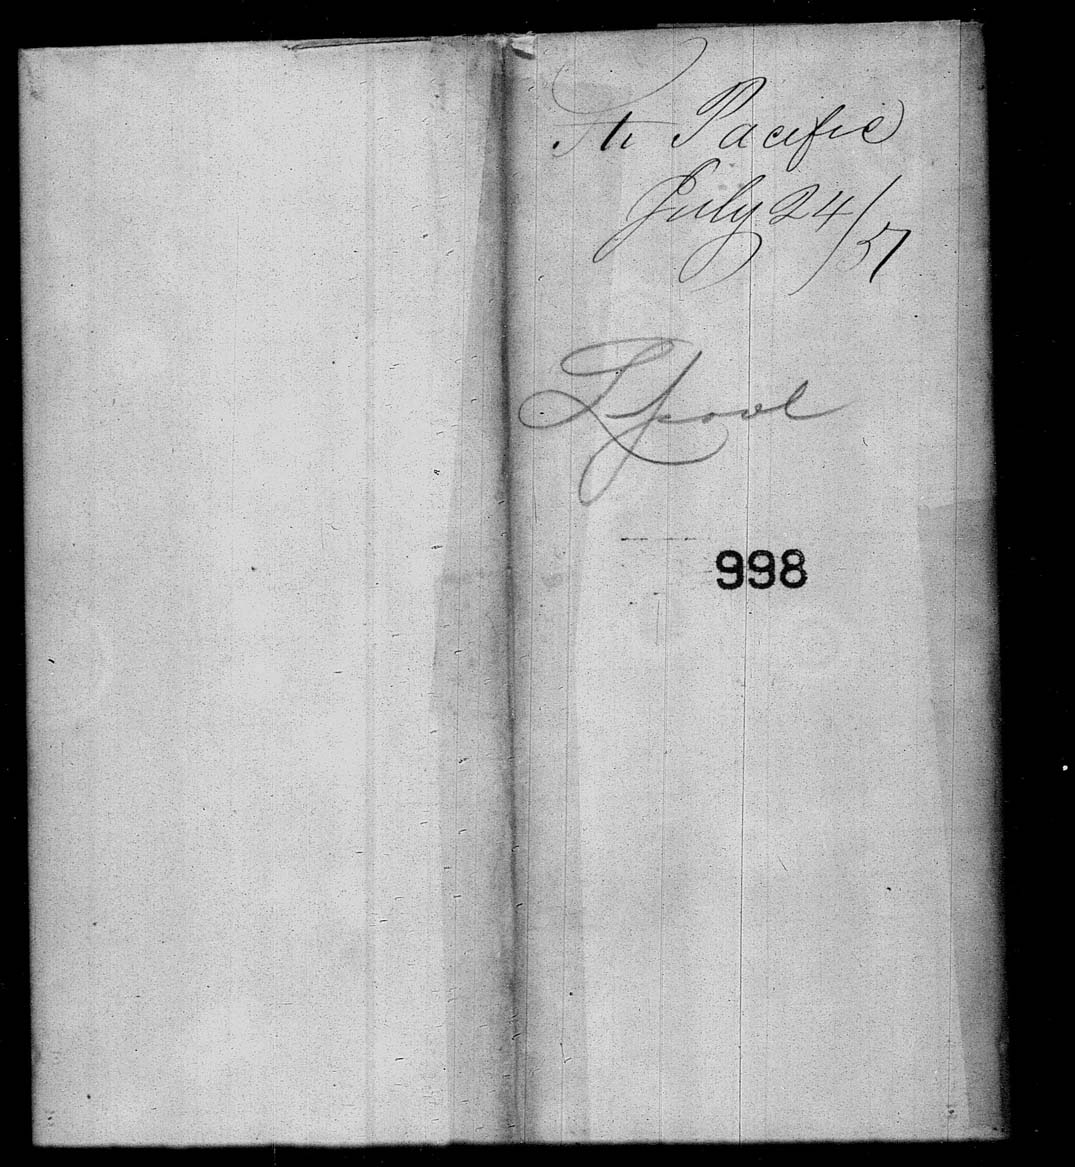 Str Pacific
July 24/51
Lpool
998